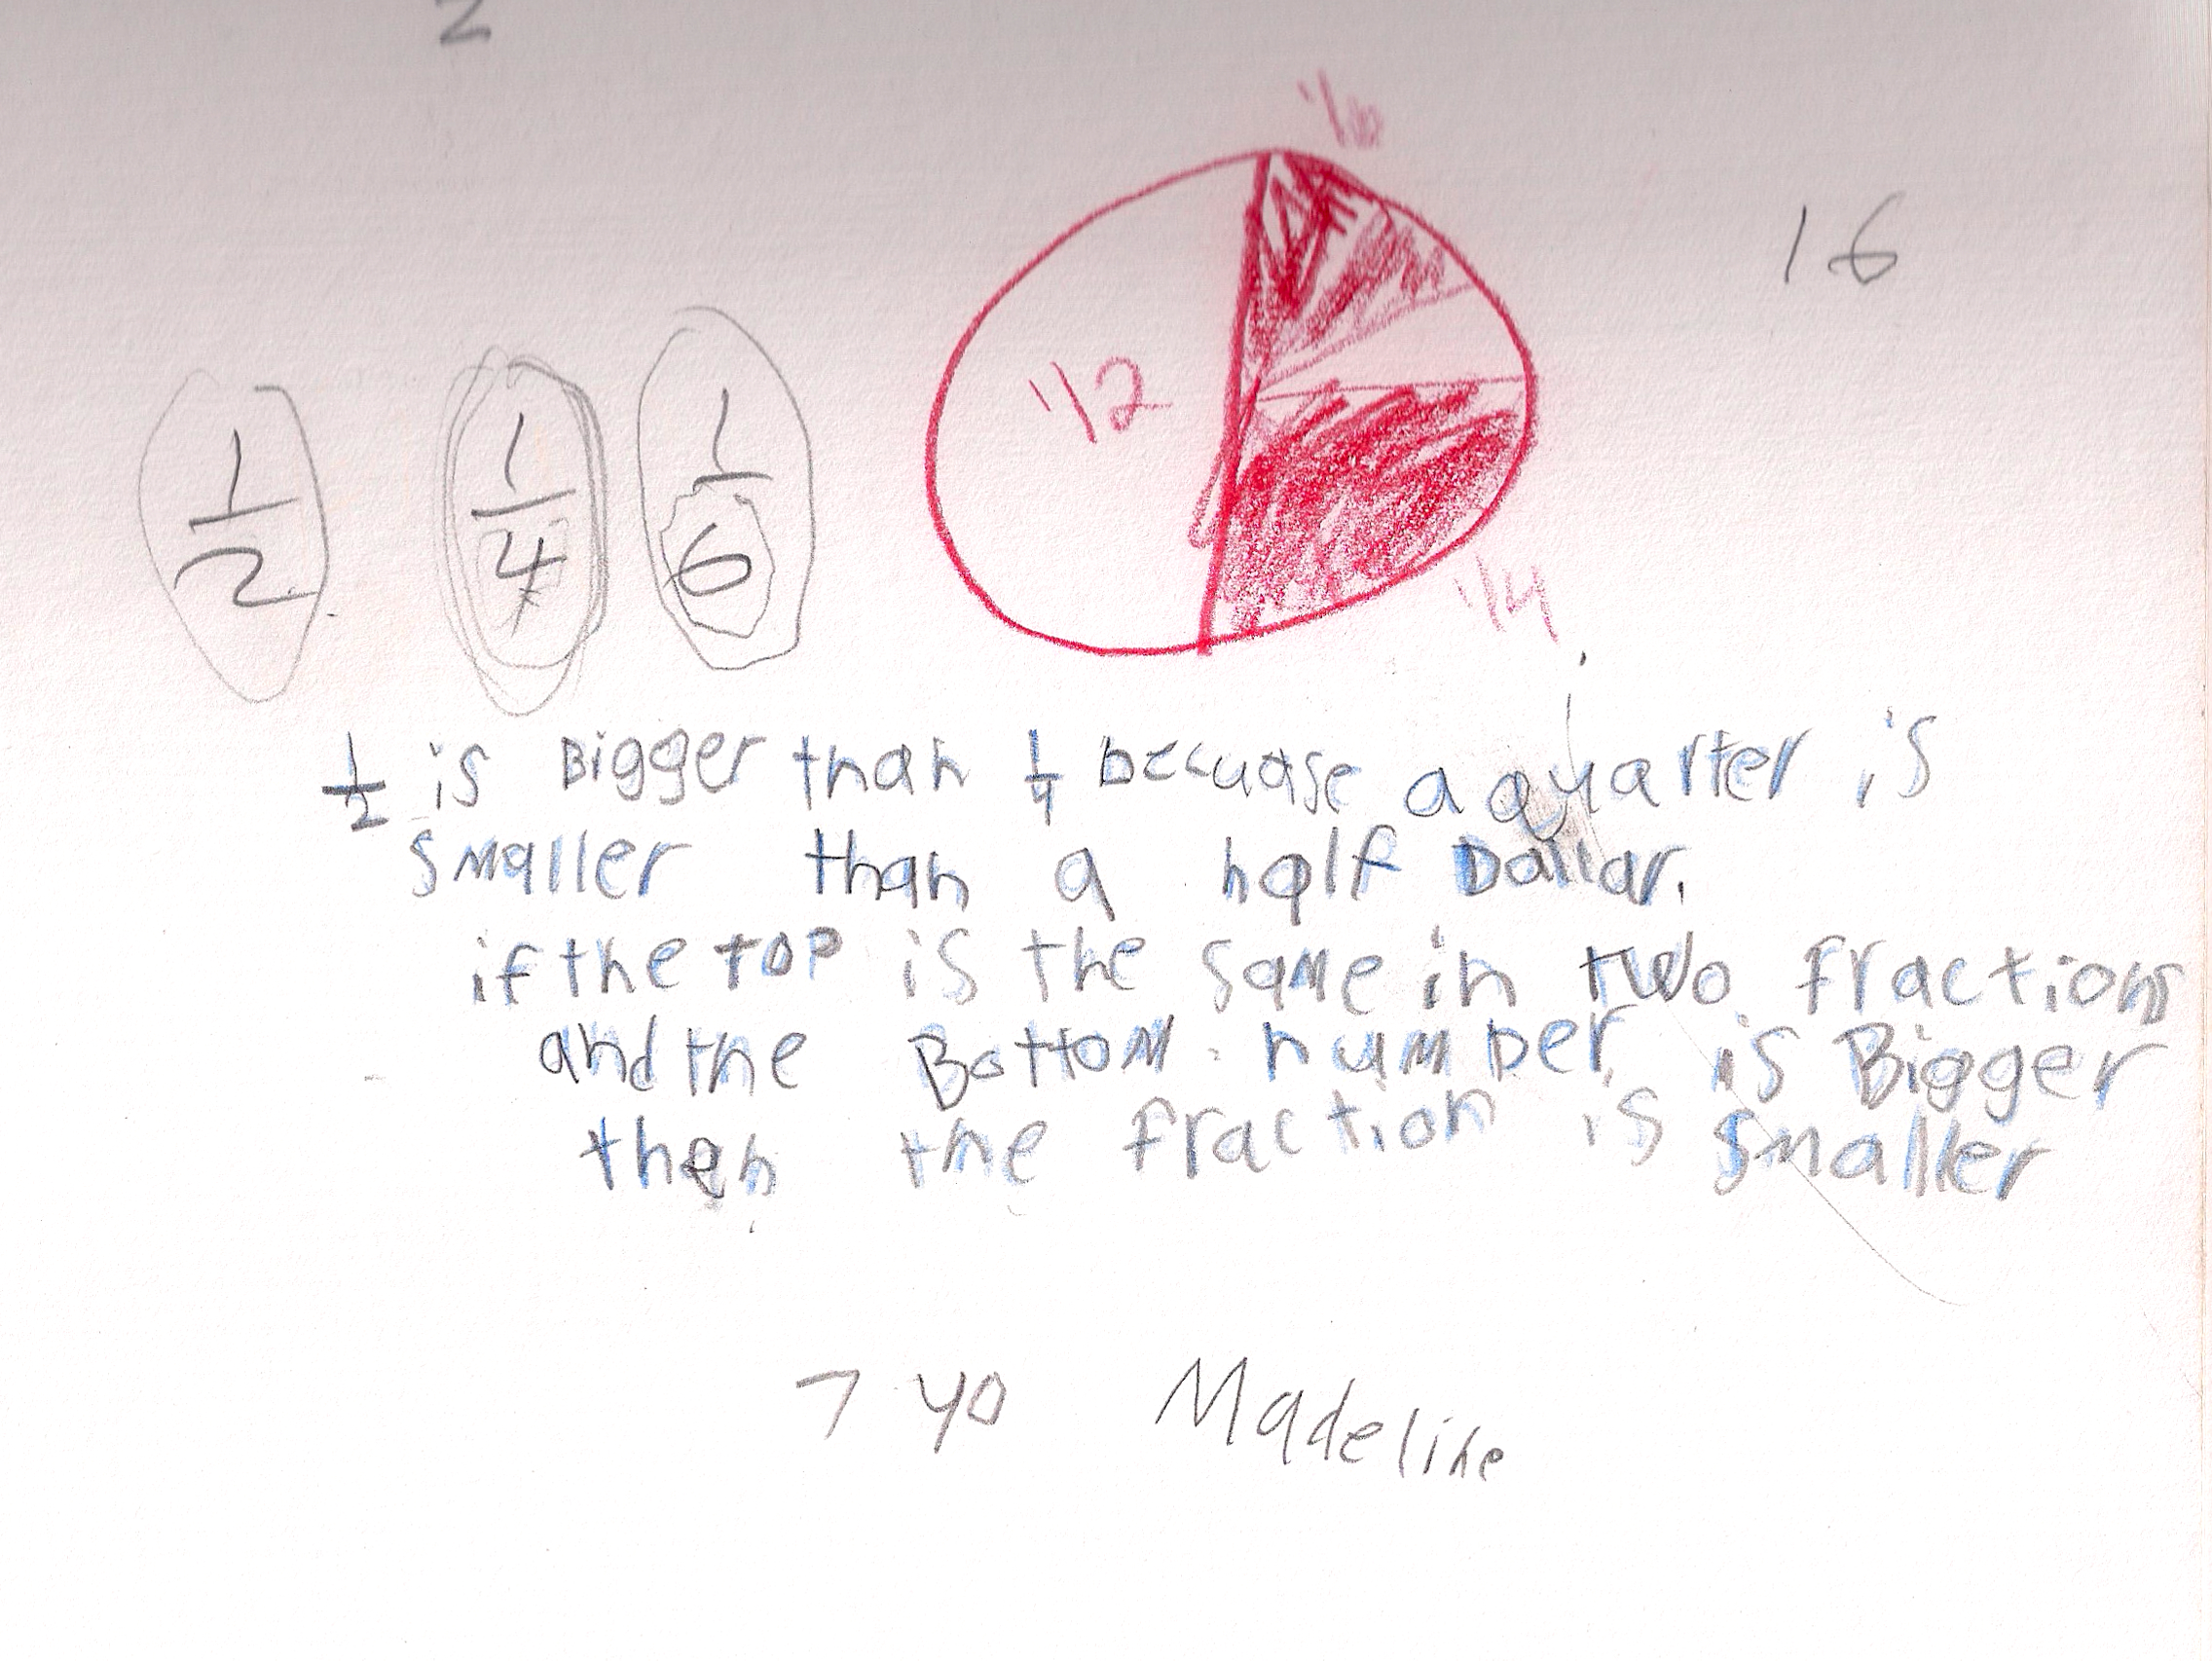 2
1/6
16
1/2 1/4 1/6
1/2
1/4
1/2 is Bigger than 1/4 becuase a quarter is
smaller than a half Dollar.
if the top is the same in two fractions
and the Bottom number is Bigger
then the fraction is smaller
7 yo Madeline